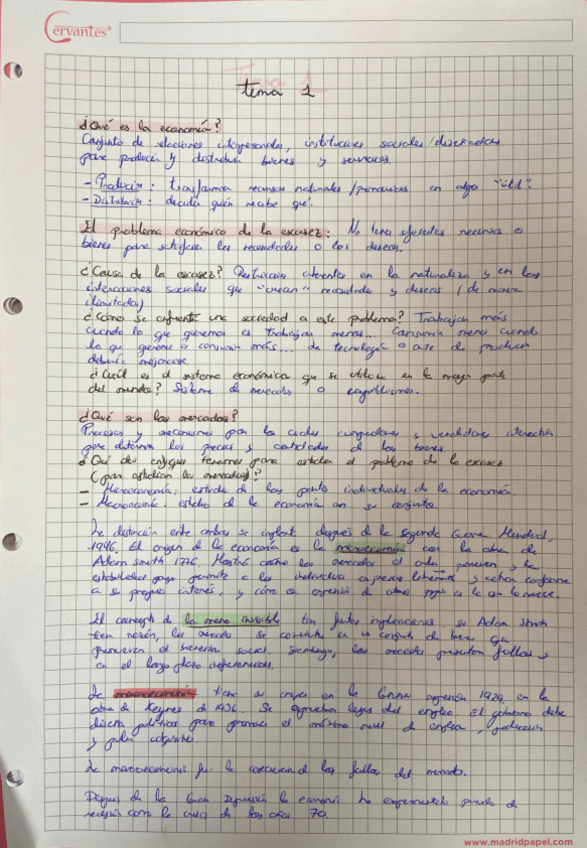 Cervantes
tema 1
¿Qué es la economía?
Conjunto de relaciones interpersonales, instituciones sociales/diseñadas
para producir y distribuir bienes y servicios
- Producción: transformar recursos naturales/primarios en algo "útil".
- Distribución: decidir quién recibe qué.
El problema económico de la escasez: No tener suficientes recursos o
bienes para satisfacer las necesidades o los deseos.
¿Causa de la escasez? en la naturaleza y en las
interacciones sociales que "crean" necesidades y deseos (de manera
ilimitada)
¿Cómo se enfrenta una sociedad a este problema? Trabajan más
cuando lo que queremos es trabajar menos. Consumir menos cuando
lo que quieren es consumir más... La tecnología o arte de producir
debería mejorarse
¿Cuál es el sistema económico que se utiliza en la mayor parte
del mundo? Sistema de mercados o capitalismo.
¿Qué son los mercados?
Procesos y mecanismos por los cuales compradores y vendedores interactúan
para determinar los precios y cantidades de los bienes.
¿Qué dos enfoques tenemos para estudiar el problema de la escasez
(para estudiar los mercados)?
- Microeconomía: estudio de las partes individuales de la economía.
- Macroeconomía: estudio de la economía en su conjunto.
La distinción entre ambas se implantó después de la segunda Guerra Mundial,
1946. El origen de la economía es la microeconomía con la obra de
Adam Smith 1776. Mostró cómo los mercados
a su propio interés, y
El concepto de la mano invisible tiene fuertes implicaciones. Si Adam Smith
tiene razón, los mercados se convierten en un conjunto de bienes que
promueven el bienestar social. Sin embargo, los mercados presentan fallos y
en el largo plazo
La macroeconomía tiene su origen en la Gran depresión 1929, en la
obra de Keynes de 1936. Se aprueban leyes del empleo. El gobierno debe
diseñar políticas para promover el máximo nivel de empleo, producción
y poder adquisitivo.
La macroeconomía fue la consecuencia de los fallos del mercado.
Después de la Gran Depresión la economía ha experimentado periodos de
recesión como la crisis de los años 70.
www.madridpapel.com